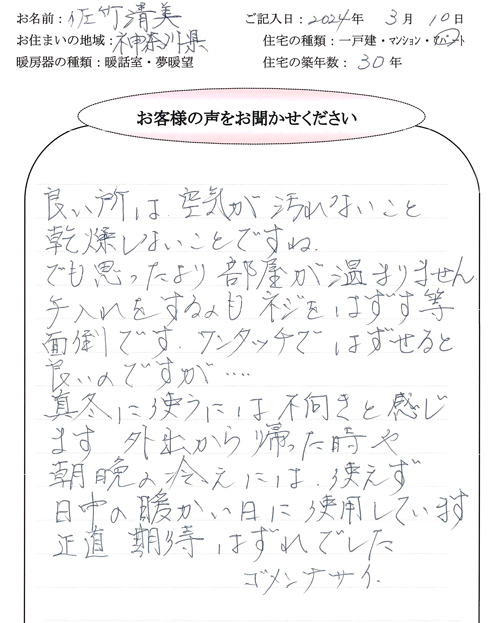 お名前：佐竹清美 ご記入日：2024年 3月 10日
お住まいの地域：神奈川県 住宅の種類：一戸建・マンション・アパート
暖房器の種類：暖話室・夢暖望 住宅の築年数：30年
お客様の声をお聞かせください
良い所は、空気が汚れないこと
乾燥しないことですね。
でも思ったより部屋が温まりません
手入れをするのもネジをはずす等
面倒です。ワンタッチではずせると
良いのですが‥‥
真冬に使うには不向きと感じ
ます 外出から帰った時や
朝晩の冷えには、使えず
日中の暖かい日に使用しています
正道 期待はずれでした
ゴメンナサイ.